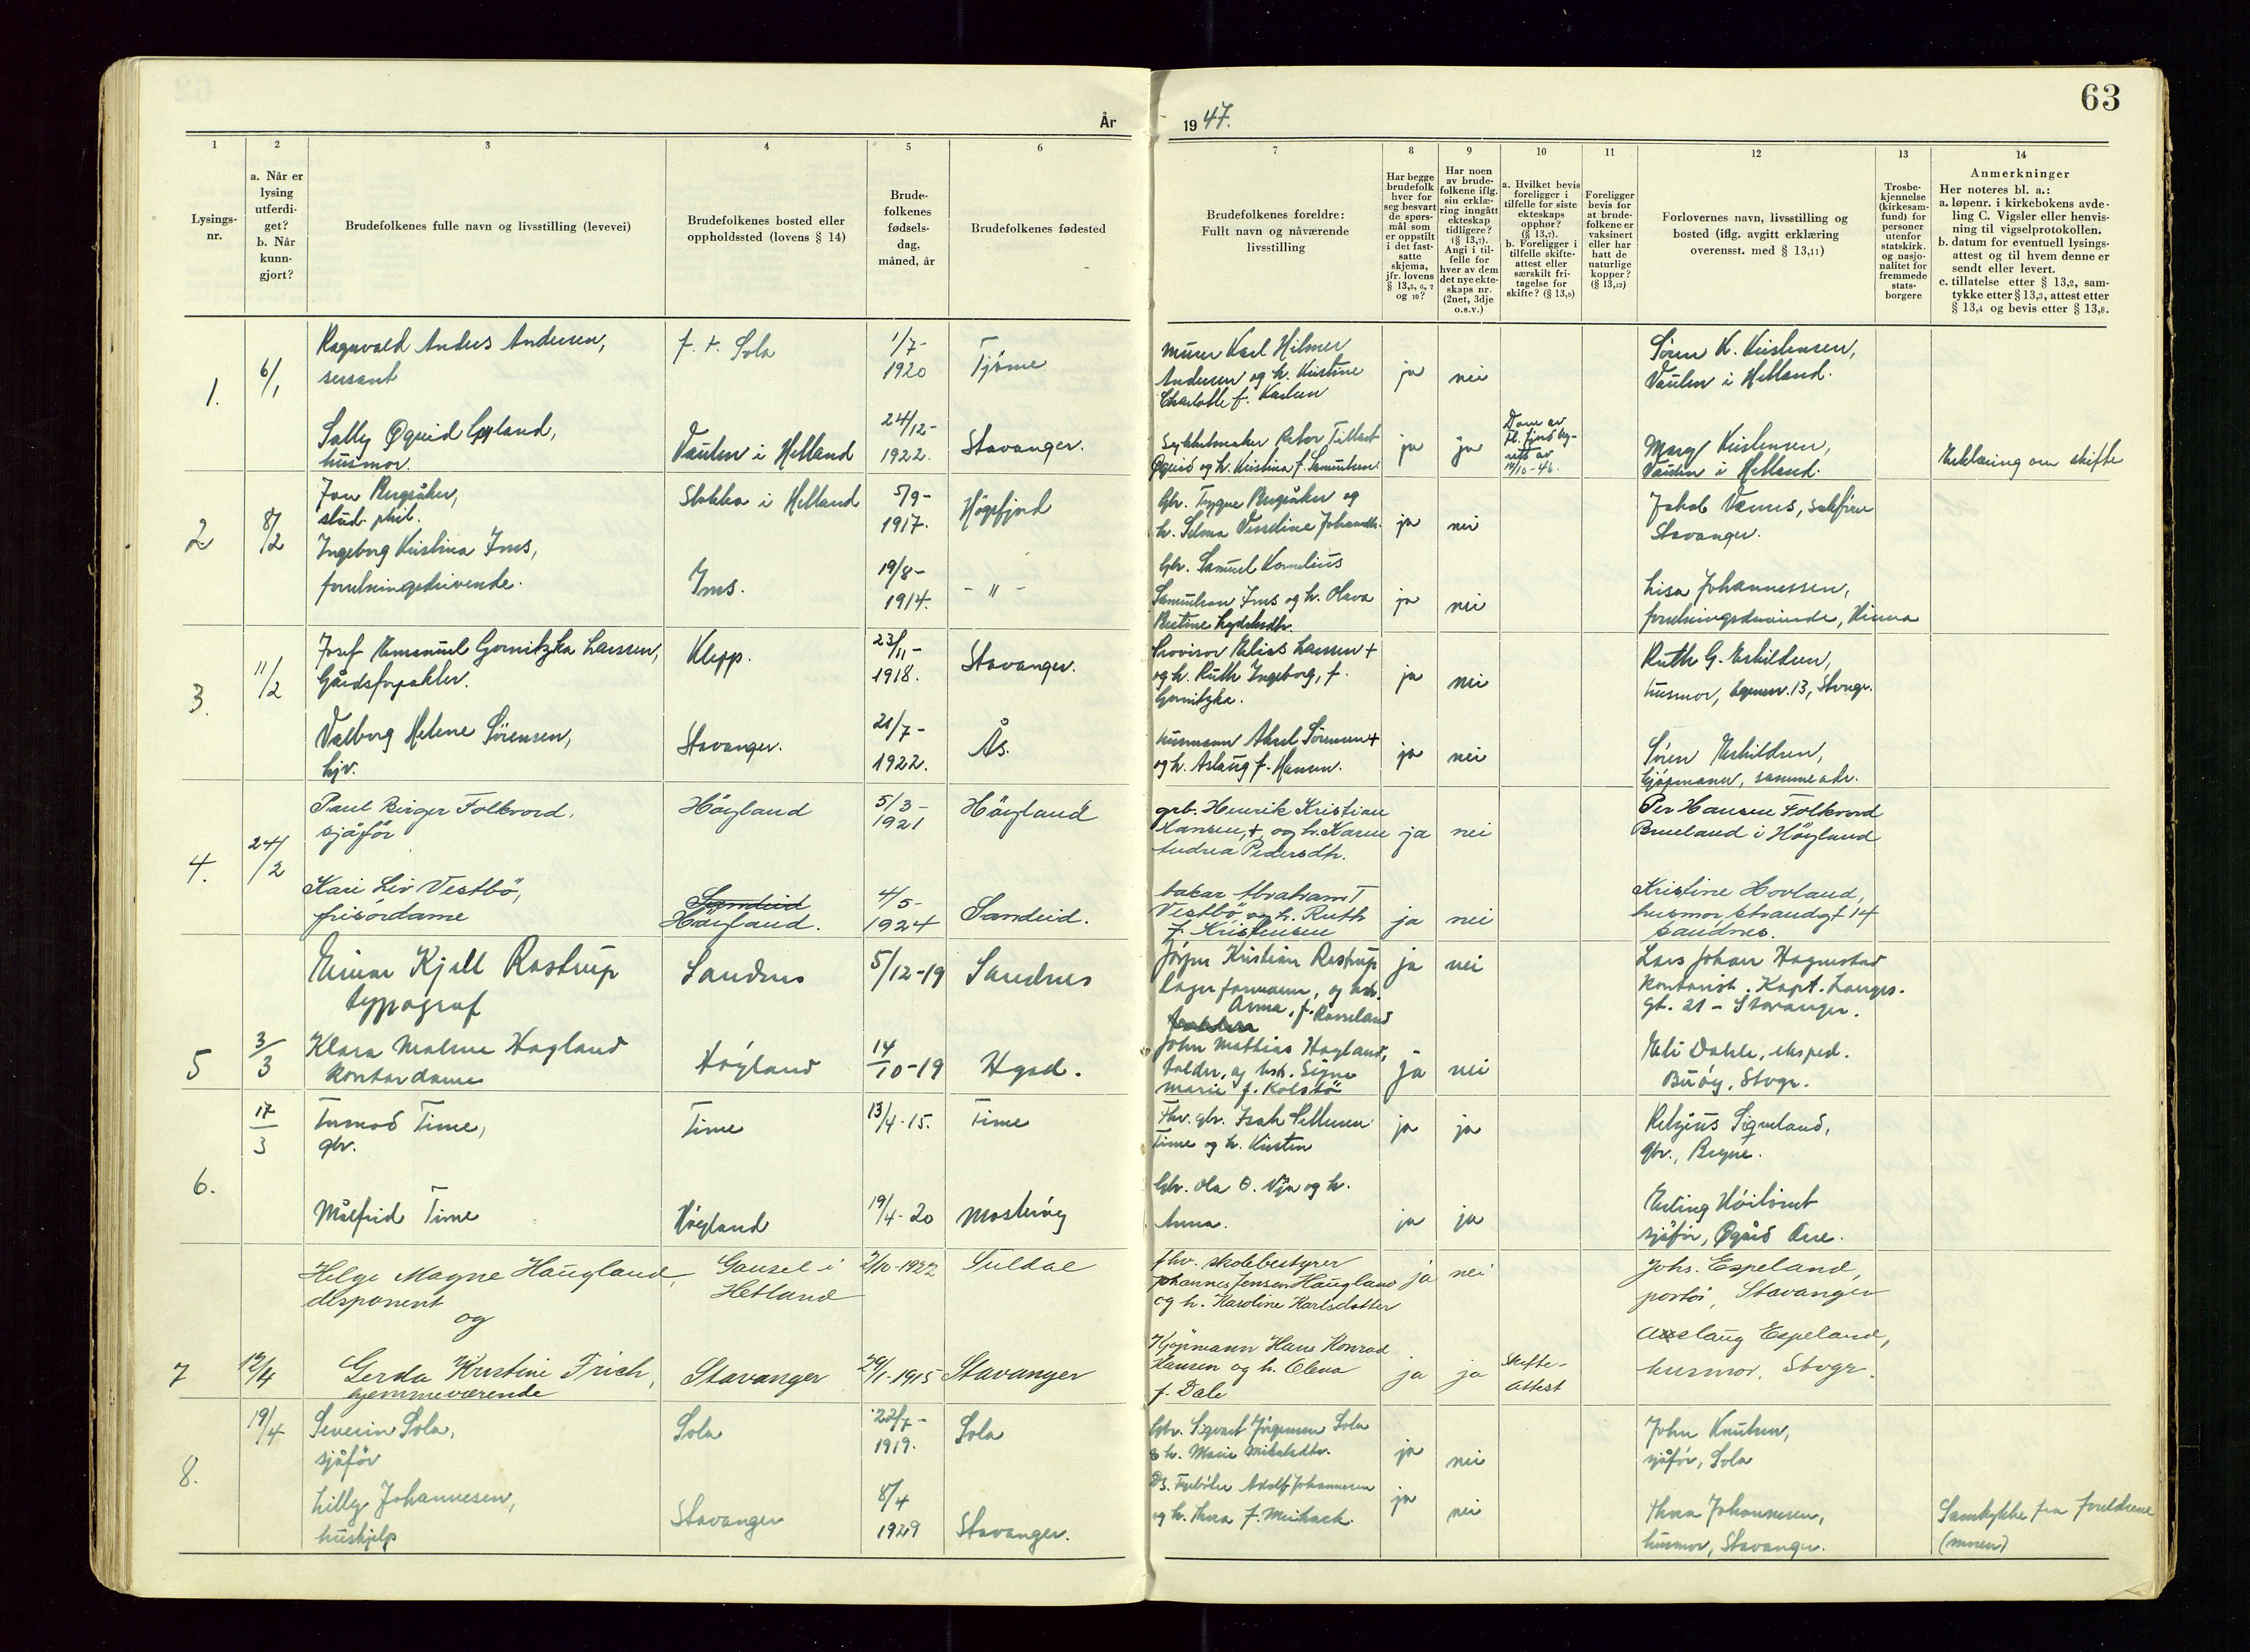 63
År
19 47.
1
2
3
4
5
6
7
8
9
10
11
12
13
14
Lysings-
nr.
a. Når er
lysing
utferdi-
get?
b. Når
kunn-
gjort?
Brudefolkenes fulle navn og livsstilling (levevei)
Brudefolkenes bosted eller
oppholdssted (lovens § 14)
Brude-
folkenes
fødsels-
dag,
måned, år
Brudefolkenes fødested
Brudefolkenes foreldre:
Fullt navn og nåværende
livsstilling
Har begge
brudefolk
hver for
seg besvart
de spørs-
mål som
er oppstilt
i det fast-
satte
skjema,
jfr. lovens
§ 13,5, 6, 7
og 10?
Har noen
av brude-
folkene iflg.
sin erklæ-
ring inngått
ekteskap
tidligere?
(§ 13,7).
Angi i til-
felle for
hver av dem
det nye ekte-
skaps nr.
(2net, 3dje
o.s.v.)
a. Hvilket bevis
foreligger i
tilfelle for siste
ekteskaps
opphør?
(§ 13,7).
b. Foreligger i
tilfelle skifte-
attest eller
særskilt fri-
tagelse for
skifte? (§ 13,8)
Foreligger
bevis for
at brude-
folkene er
vaksinert
eller har
hatt de
naturlige
kopper?
(§ 13,12)
Forlovernes navn, livsstilling og
bosted (iflg. avgitt erklæring
overensst. med § 13,11)
Trosbe-
kjennelse
(kirkesam-
fund) for
personer
utenfor
statskirk.
og nasjo-
nalitet for
fremmede
stats-
borgere
Anmerkninger
Her noteres bl. a.:
a. løpenr. i kirkebokens avde-
ling C. Vigsler eller henvis-
ning til vigselprotokollen.
b. datum for eventuell lysings-
attest og til hvem denne er
sendt eller levert.
c. tillatelse etter § 13,2, sam-
tykke etter § 13,3, attest etter
§ 13,4 og bevis etter § 13,8.
1.
6/1
Ragnvald Anders Andersen,
sersant
f. t. Sola
1/7-
1920
Tjøme
Murer Karl Hilmer
Andersen og h. Kristine
Charlotte f. Karlsen
ja
nei
Sören K. Kristensen,
Vaulen i Hetland.
Sally Øgreid
husmor.
Vaulen i Hetland
24/12-
1922.
Stavanger.
Peter Tillert
Øgreid og h. Kristina f. Samuelsen.
ja
ja
Dom av
rett av
14/10-46.
Mary Kristensen,
Vaulen i Hetland.
Erklæring om skifte
2
8/2
Jon Bergsåker,
stud. phil.
Stokka i Hetland
5/9-
1917.
Högsfjord
Gbr. Trygve Bergsåker og
h. Selma Johansdtr.
ja
nei
Jakob Vannes, sakfører
Stavanger.
Ingeborg Kristina Ims,
forretningsdrivende.
Ims.
19/8-
1914.
- " -
Gbr. Samuel Kornelius
Samuelsen Ims og h. Olava
Bertine
ja
nei
Lisa Johannessen,
forretningsdrivende, Hinna
3.
11/2
Josef Emanuel Gornitzka Larssen,
Gårdsforpakter.
Klepp.
23/11-
1918.
Stavanger.
Provisor Elias Larssen +
og h. Ruth Ingeborg, f.
Gornitzka.
ja
nei
Ruth G. Eskildsen,
husmor, 13, Stvgr.
Valborg Helene Sörensen,
hjv.
Stavanger.
21/7-
1922.
Ås.
Aksel Sörensen +
og h. Aslaug f. Hansen.
ja
nei
Sören Eskildsen,
kjöpmann, samme adr.
4.
24/2
Paul Birger Folkvord.
sjåför
Höyland
5/3-
1921
Höyland
grb. Henrik Kristian
Hansen, +, og h. Karen
Andrea Pedersdtr.
ja
nei
Per Hansen Folkvord
Brueland i Höyland
Kari Liv Vestbö,
frisördame
Sandeid
Höyland.
4/5-
1924
Sandeid.
baker Abraham T
Vestbö og h. Ruth
f. Kristensen
ja
nei
Kristine Hovland,
husmor Strandgt 14
Sandnes.
Einar Kjell Rostrup
typograf
Sandnes
5/12-19
Sandnes
Jörgen Kristian Rostrup
lagerformann, og hst.
Anna, f. Rosseland
ja
nei
Lars Johan Hognestad
kontorist. Kapt. Langes.
gt. 21 - Stavanger.
5
3/3
Klara Malene Hogland
kontordame
Höyland
14/10-19
Hgsd.
John Mathias Hogland,
tolder, og hst. Signe
Marie f. Kolstö
ja
nei
Eli Dahle, eksped.
Buöy, Stvgr.
6.
17/3
Tormod Time,
gbr.
Time
13/4-15.
Time
Fhv. gbr. Isak Pettersen
Time og h. Kirsten
ja
ja
Retzius Sigveland,
gbr., Bryne.
Målfrid Time
Höyland
19/4-20
Mosteröy
Gbr. Ola O. Vja og h.
Anna.
ja
ja
Erling
sjåför, Øgård Are.
Helge Magne Haugland,
disponent
og
Gausel i
Hetland
2/10-1922
Suldal
fhv. skolebestyrer
Johannes Jensen Haugland
og h. Karoline Karlsdotter
ja
nei
Johs. Espeland,
portör, Stavanger
7
12/4
Gerda Kristine Frich,
hjemmeværende
Stavanger
29/1-1915
Stavanger
Kjöpmann Hans Konrad
Hansen og h. Olena
f. Dale
ja
ja
Skifte-
attest
Aslaug Espeland,
husmor, Stvgr.
8.
19/4
Severin Sola,
sjåför
Sola
22/7-
1919.
Sola
Gbr. Sigvart Jörgensen Sola
& h. Marie Mikalsdtr.
ja
nei
John Knutsen,
sjåför, Sola
Lilly Johannesen,
hushjelp
Stavanger
8/4
1929
Stavanger.
Ds. Fyrböter Adolf Johannesen
og h. Thora f. Meihack.
ja
nei
Thora Johannesen,
husmor, Stavanger.
Samtykke fra foreldrene
(moren)